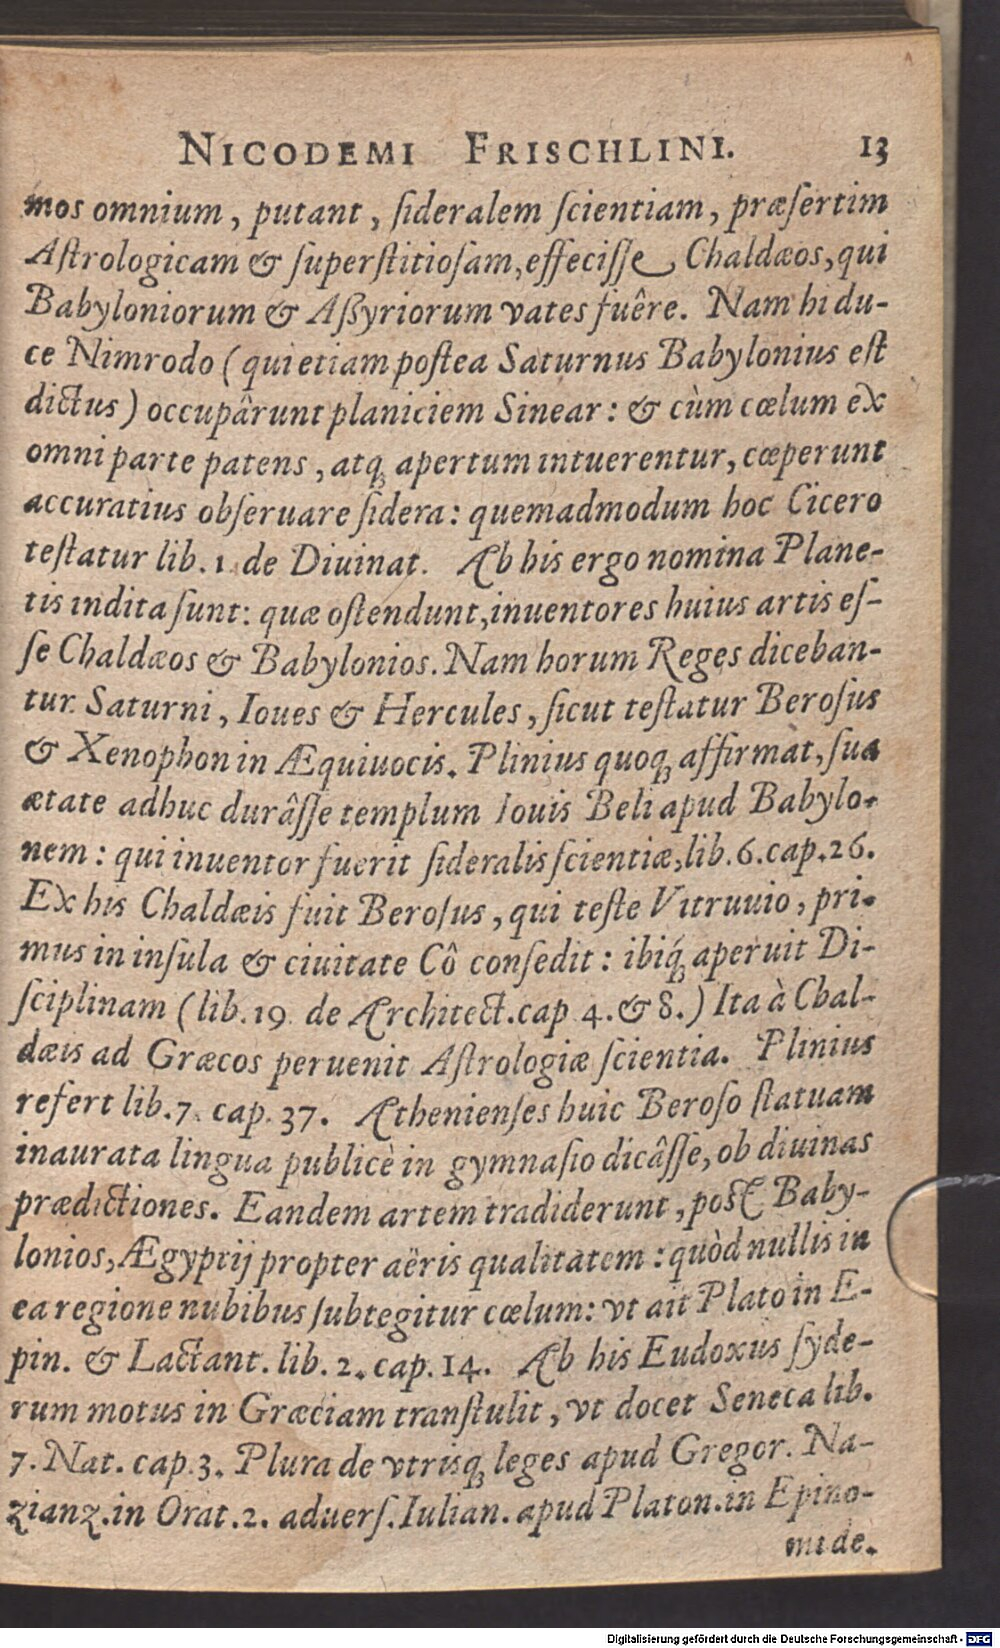 NICODEMI FRISCHLINI. 13
mos omnium, putant, ſideralem ſcientiam, præſertim
Aſtrologicam & ſuperſtitioſam, effeciſſe Chaldæos, qui
Babyloniorum & Aßyriorum vates fuêre. Nam hi du-
ce Nimrodo (qui etiam poſtea Saturnus Babylonius eſt
dictus) occupârunt planiciem Sinear: & cùm cœlum ex
omni parte patens, atq; apertum intuerentur, cœperunt
accuratius obſeruare ſidera: quemadmodum hoc Cicero
teſtatur lib. 1. de Diuinat. Ab his ergo nomina Plane-
tis indita ſunt: quæ oſtendunt, inuentores huius artis eſ-
ſe Chaldæos & Babylonios. Nam horum Reges diceban-
tur Saturni, Ioues & Hercules, ſicut teſtatur Beroſus
& Xenophon in Æquiuocis. Plinius quoq; affirmat, ſua
ætate adhuc durâſſe templum Iouis Beli apud Babylo-
nem: qui inuentor fuerit ſideralis ſcientiæ, lib. 6. cap. 26.
Ex his Chaldæis fuit Beroſus, qui teſte Vitruuio, pri-
mus in inſula & ciuitate Cô conſedit: ibiq́; aperuit Di-
ſciplinam (lib. 19. de Architect. cap 4. & 8.) Ita à Chal-
dæis ad Græcos peruenit Aſtrologiæ ſcientia. Plinius
refert lib. 7. cap. 37. Athenienſes huic Beroſo ſtatuam
inaurata lingua publicè in gymnaſio dicâſſe, ob diuinas
prædictiones. Eandem artem tradiderunt, poſt Baby-
lonios, Ægyptij propter aëris qualitatem: quòd nullis in
ea regione nubibus ſubtegitur cœlum: vt ait Plato in E-
pin. & Lactant. lib. 2. cap. 14. Ab his Eudoxus ſyde-
rum motus in Græciam tranſtulit, vt docet Seneca lib.
7. Nat. cap. 3. Plura de vtrisq; leges apud Gregor. Na-
zianz. in Orat. 2. aduerſ. Iulian. apud Platon. in Epino-
mide.
Digitalisierung gefördert durch die Deutsche Forschungsgemeinschaft - DFG